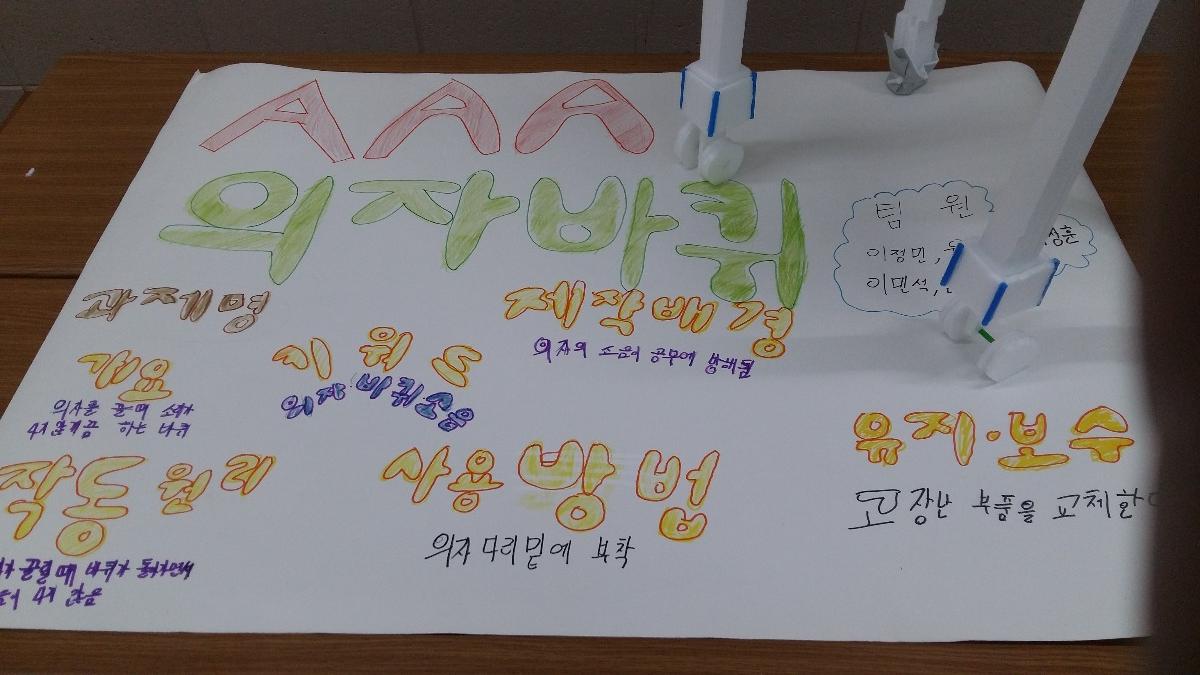 AAA
의자바퀴
팀 원
이정민,
성훈
이민석,
과제명
제작배경
의자의 소음이 공부에 방해됨
개요
의자를 끌때 소리가
나지 않게끔 하는 바퀴
의자 바퀴
작동원리
끌릴때 바퀴가
사용방법
의자 다리밑에 부착
유지·보수
고장난 부품을 교체한